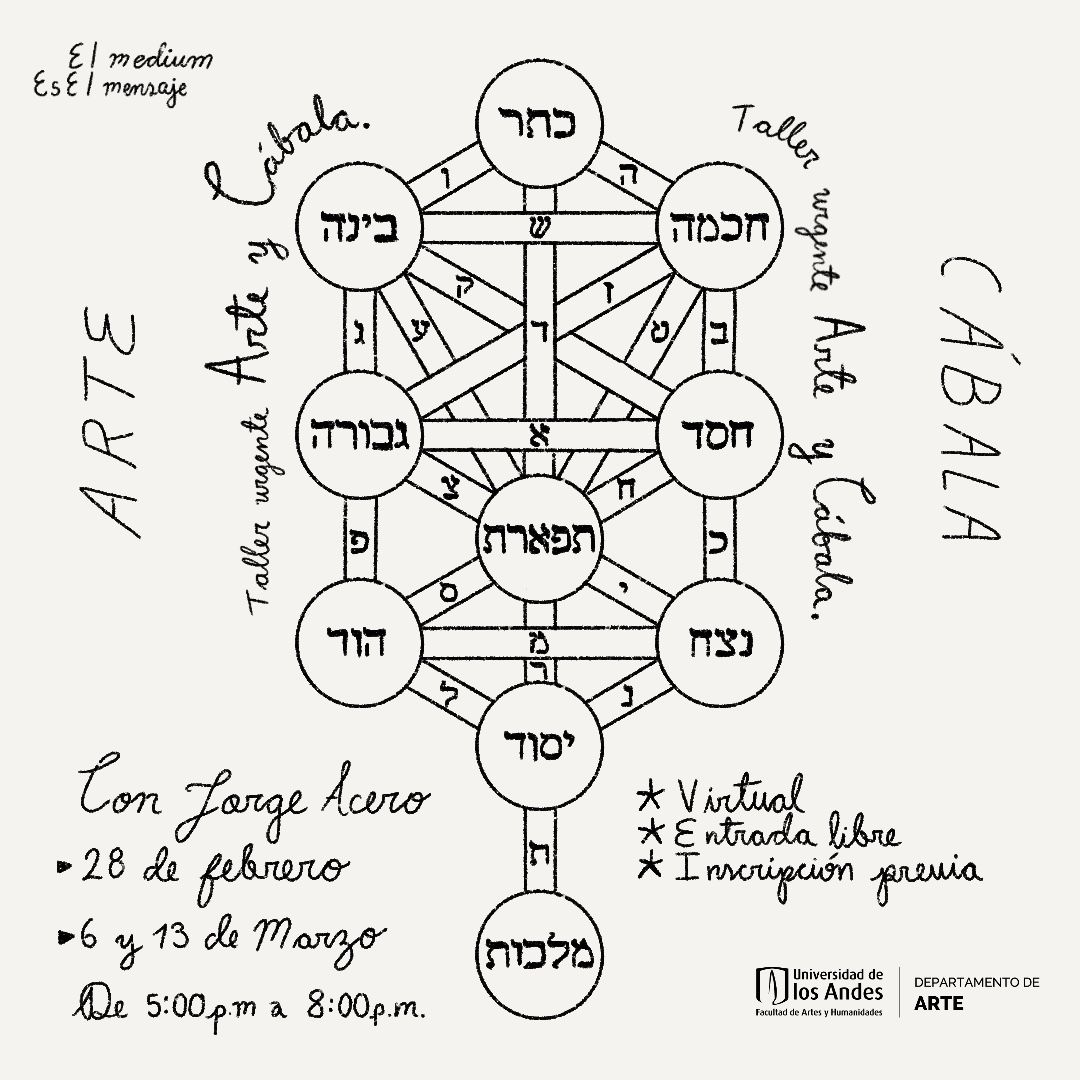 El medium
Es El mensaje
ARTE
Taller urgente Arte y Cábala.
Taller urgente Arte y Cábala.
CÁBALA
כחר
ה
ו
חכמה
ש
בינה
ז
ק
ב
ט
ד
ע
ג
חסד
א
גבורה
ח
צ
תפארת
כ
פ
י
ס
נצח
מ
הוד
ר
נ
ל
יסוד
ת
מלכות
Con Jorge Acero
28 de febrero
6 y 13 de Marzo
De 5:00p.m a 8:00p.m.
* Virtual
* Entrada libre
* Inscripción previa
Universidad de
los Andes
Facultad de Artes y Humanidades
DEPARTAMENTO DE
ARTE